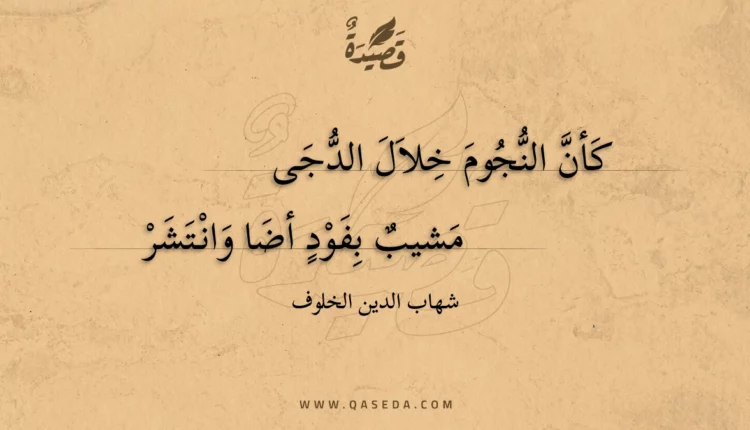 قَصِيْدَةٌ
كَأنَّ النُّجُومَ خِلاَلَ الدُّجَى
مَشيبٌ بِفَوْدٍ أضَا وَانْتَشَرْ
شهاب الدين الخلوف
WWW.QASEDA.COM